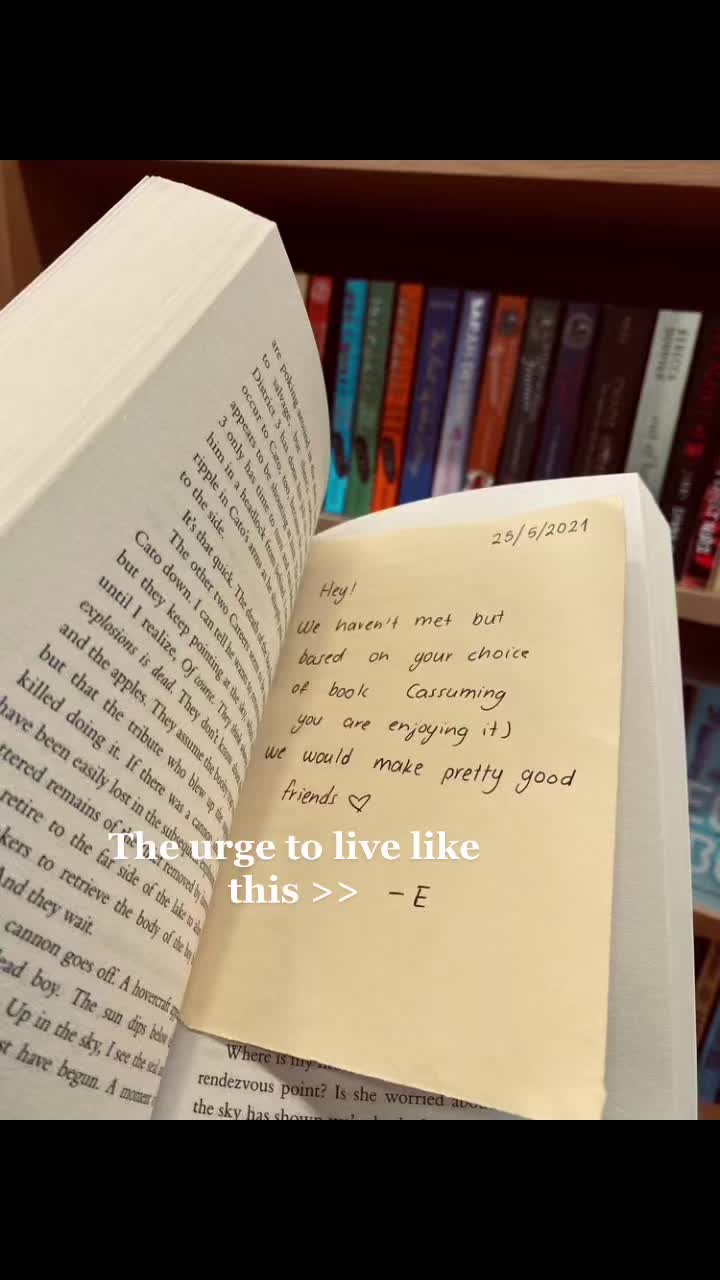 are poking around in
to salvage, but
District 3 has done
occur to Cato, too,
appears to be shouting at
3 only has time to turn and
him in a headlock from
ripple in Cato's arms as he
to the side.
It's that quick. The death of the
The other two Careers seem to
Cato down. I can tell he wants to
but they keep pointing at the sky,
until I realize, Of course. They think
explosions is dead. They don't know about
and the apples. They assume the
but that the tribute who blew up the
killed doing it. If there was a cannon
have been easily lost in the subsequent
ttered remains of the removed by
retire to the far side of the lake to
kers to retrieve the body of the boy
And they wait.
cannon goes off. A hovercraft
ead boy. The sun dips below
Up in the sky, I see the seal
st have begun. A moment
25/5/2021
Hey!
We haven't met but
based on your choice
of book (assuming
you are enjoying it)
we would make pretty good
friends ♡
- E
The urge to live like
this >>
Where is my
rendezvous point? Is she worried
the sky has shown